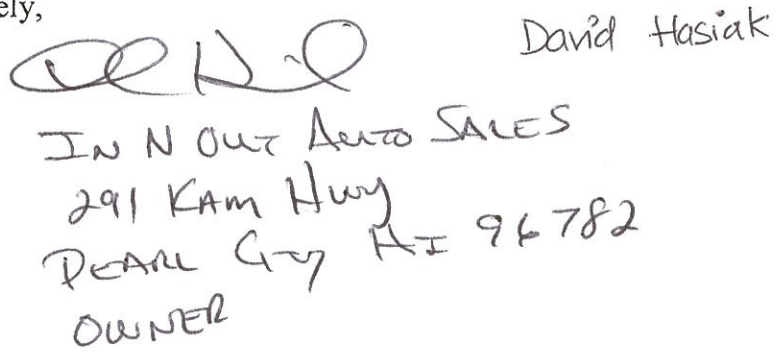 ely,
David Hasiak
IN N OUT AUTO SALES
291 KAM Hwy
PEARL City HI 96782
OWNER